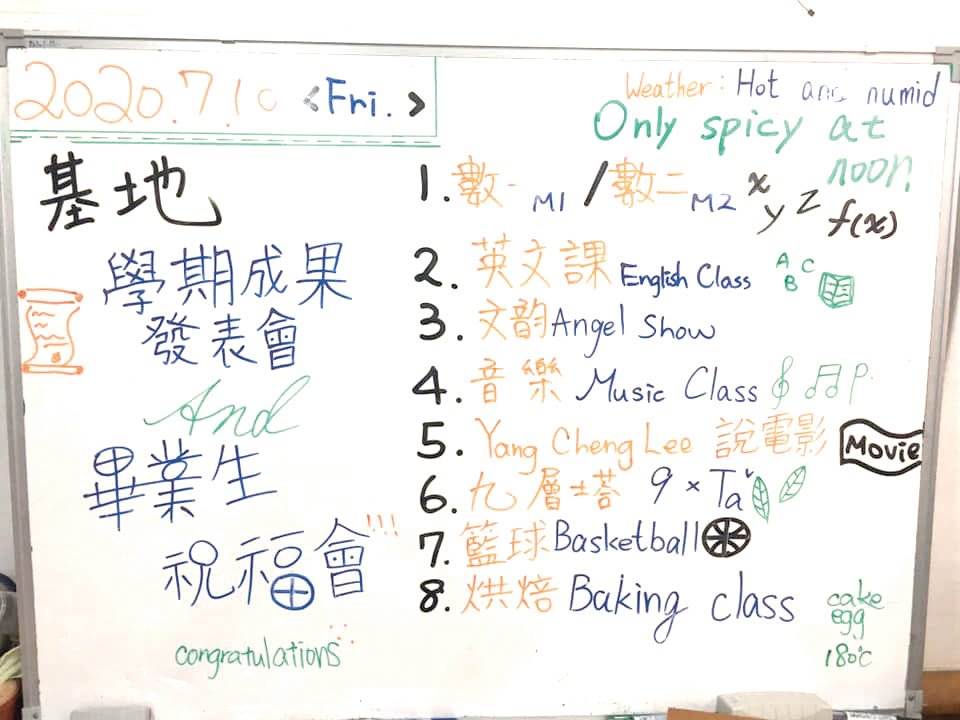 2020.7.10 <Fri.>
Weather: Hot and numid
Only spicy at
noon
基地
學期成果
發表會
And
畢業生
祝福會!!!
congratulations
1. 數一 M1 / 數二 M2 x y z f(x)
2. 英文課 English Class A B C
3. 文韵 Angel Show
4. 音樂 Music Class
5. Yang Cheng Lee 說電影 Movie
6. 九層塔 9 × Taˇ
7. 籃球 Basketball
8. 烘焙 Baking class
cake
egg
180°C